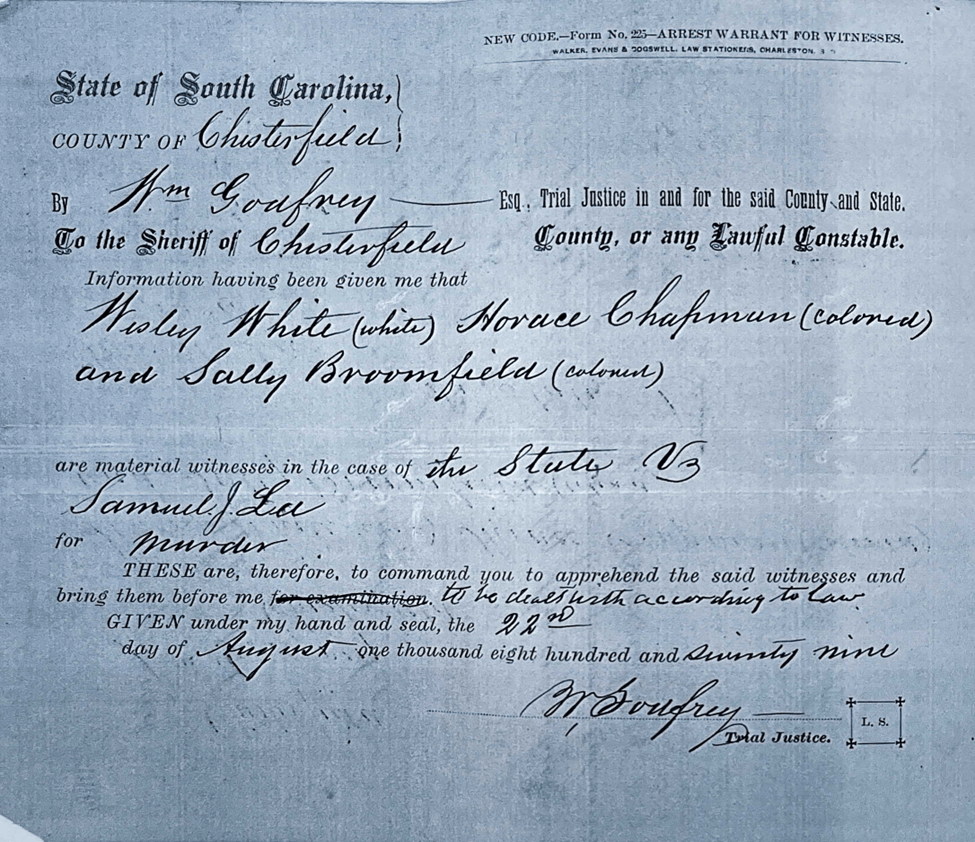 NEW CODE.—Form No. 225—ARREST WARRANT FOR WITNESSES.
WALKER, EVANS & COGSWELL, LAW STATIONERS, CHARLESTON,
State of South Carolina,
COUNTY OF Chesterfield
By Wm Godfrey Esq., Trial Justice in and for the said County and State.
To the Sheriff of Chesterfield County, or any Lawful Constable.
Information having been given me that
Wesley White (white) Horace Chapman (colored)
and Sally Broomfield (colored)
are material witnesses in the case of the State Vs
Samuel J. Lee
for Murder
THESE are, therefore, to command you to apprehend the said witnesses and
bring them before me for examination. to be dealt with according to law
GIVEN under my hand and seal, the 22nd
day of August one thousand eight hundred and seventy nine
W. Godfrey
Trial Justice.
L. S.